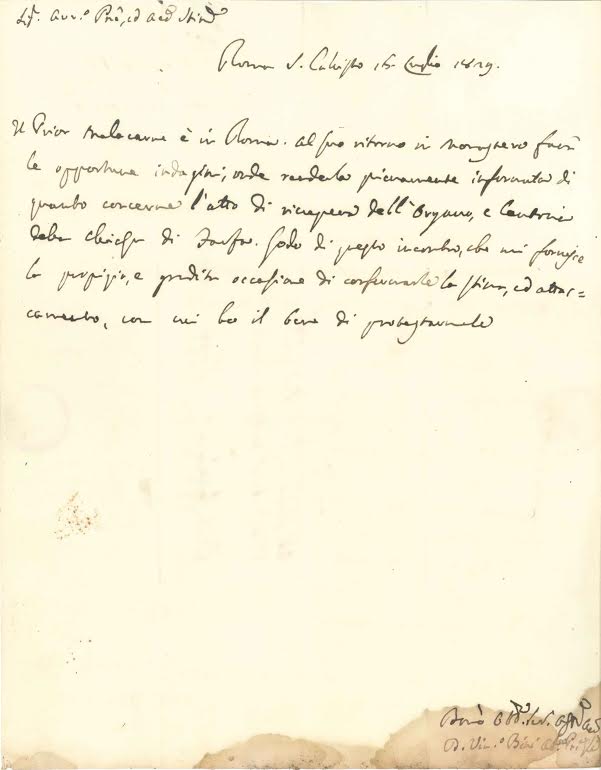 Roma S. Calisto 16. Luglio 1829.
Il Prior Malacarne è in Roma. Al suo ritorno in Monastero farà
le opportune indagini, onde renderla pienamente informata di
quanto concerne l'atto di ricupera dell'Organo, e
della Chiesa di Farfa. Godo di questo incontro, che mi fornisce
la propizia, e gradita occasione di confermarle la stima, ed attac=
camento, con cui ho il bene di protestarmele